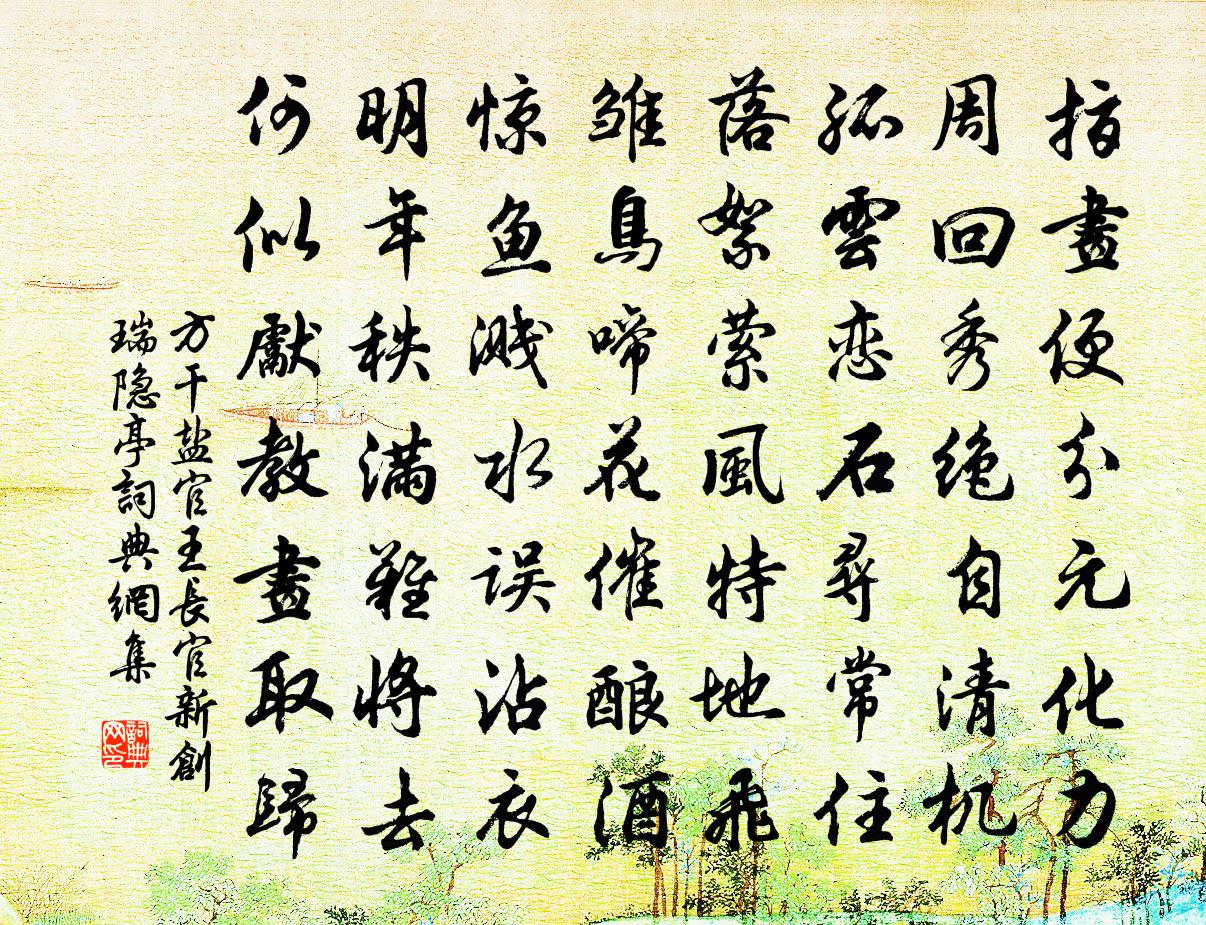 指畫便分元化力
周回秀绝自清机
孤雲恋石尋常住
落絮萦風特地飛
雏鳥啼花催酿酒
惊鱼溅水误沾衣
明年秩满難将去
何似獻教畫取歸
方干盐官王長官新創
瑞隐亭詞典網集
詞典
网印